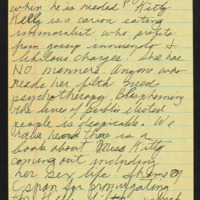 when he is needed? Kitty
Kelly is a carion eating
immoralist who profits
from gossip innuendo &
libilous charges! She has
NO manners. Anyone who
reads her filth needs
psychotherapy. Besmirching
the lives of public elected
people is despicable. We
hear there is a
book about Miss Kitty
coming out including
her sex life. Shame
upon for promulgating